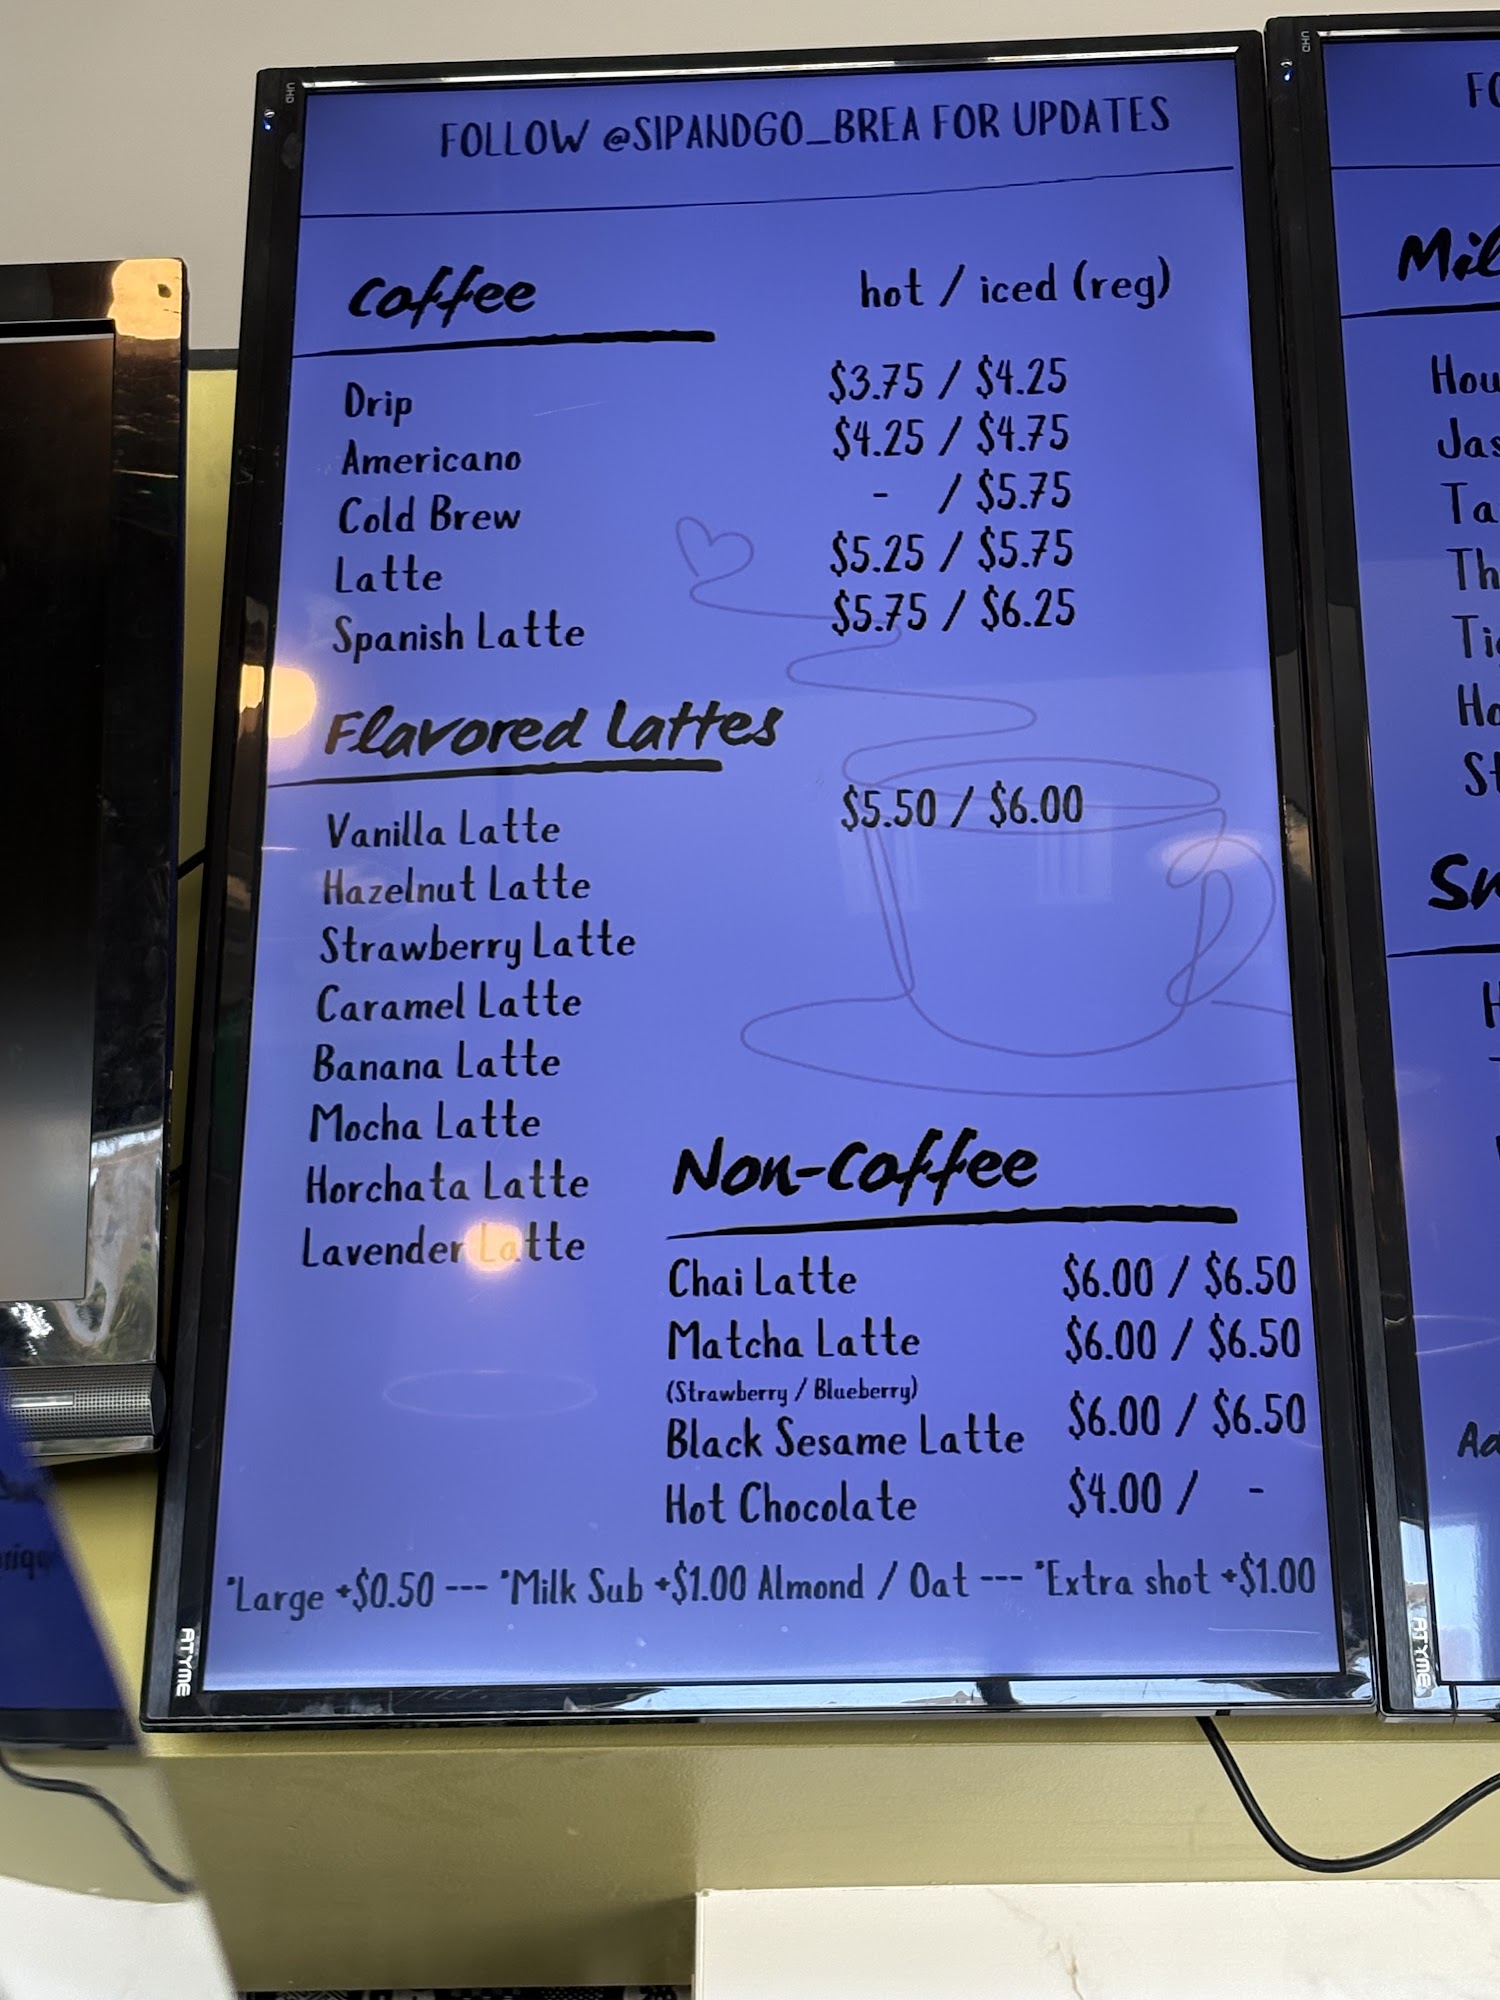 UHD
FOLLOW @SIPANDGO_BREA FOR UPDATES
Coffee hot / iced (reg)
Drip $3.75 / $4.25
Americano $4.25 / $4.75
Cold Brew - / $5.75
Latte $5.25 / $5.75
Spanish Latte $5.75 / $6.25
Flavored Lattes
Vanilla Latte $5.50 / $6.00
Hazelnut Latte
Strawberry Latte
Caramel Latte
Banana Latte
Mocha Latte
Horchata Latte
Lavender Latte
Non-Coffee
Chai Latte $6.00 / $6.50
Matcha Latte $6.00 / $6.50
(Strawberry / Blueberry)
Black Sesame Latte $6.00 / $6.50
Hot Chocolate $4.00 / -
*Large +$0.50 --- *Milk Sub +$1.00 Almond / Oat --- *Extra shot +$1.00
ATYME
UHD
FO
Mil
Hou
Jas
Ta
Th
Ho
St
H
ATYME